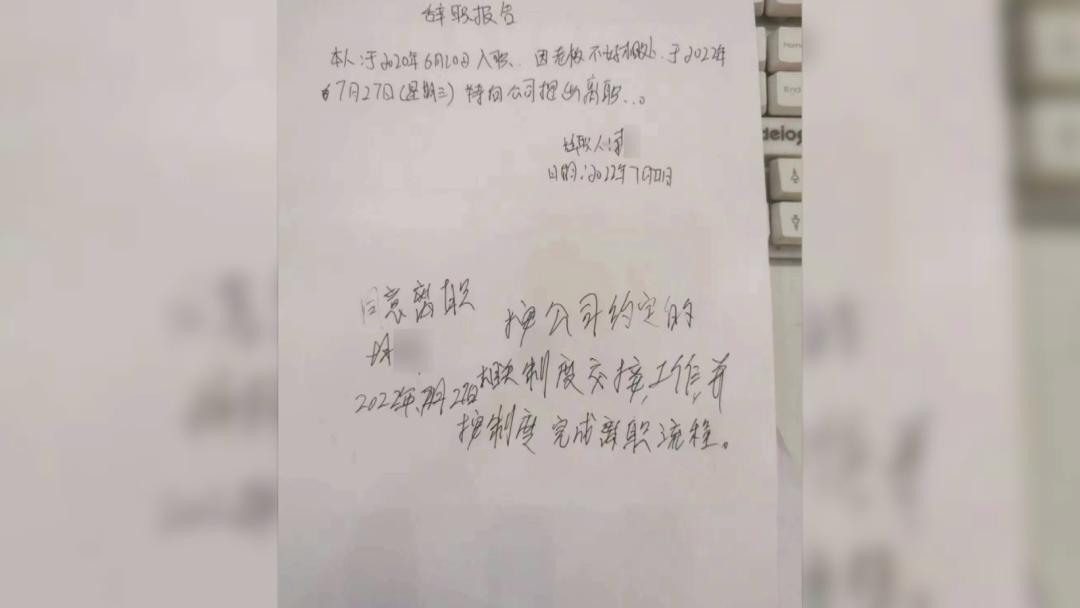 辞职报告
本人于2020年6月20日入职、因老板不好相处、于2022年
7月27日(星期三)特向公司提出离职...。
辞职人:
日期:2022年7月
同意离职
按公司约定的
2022年7月27日
相关制度交接工作,并
按制度完成离职流程。
Home
End
delog